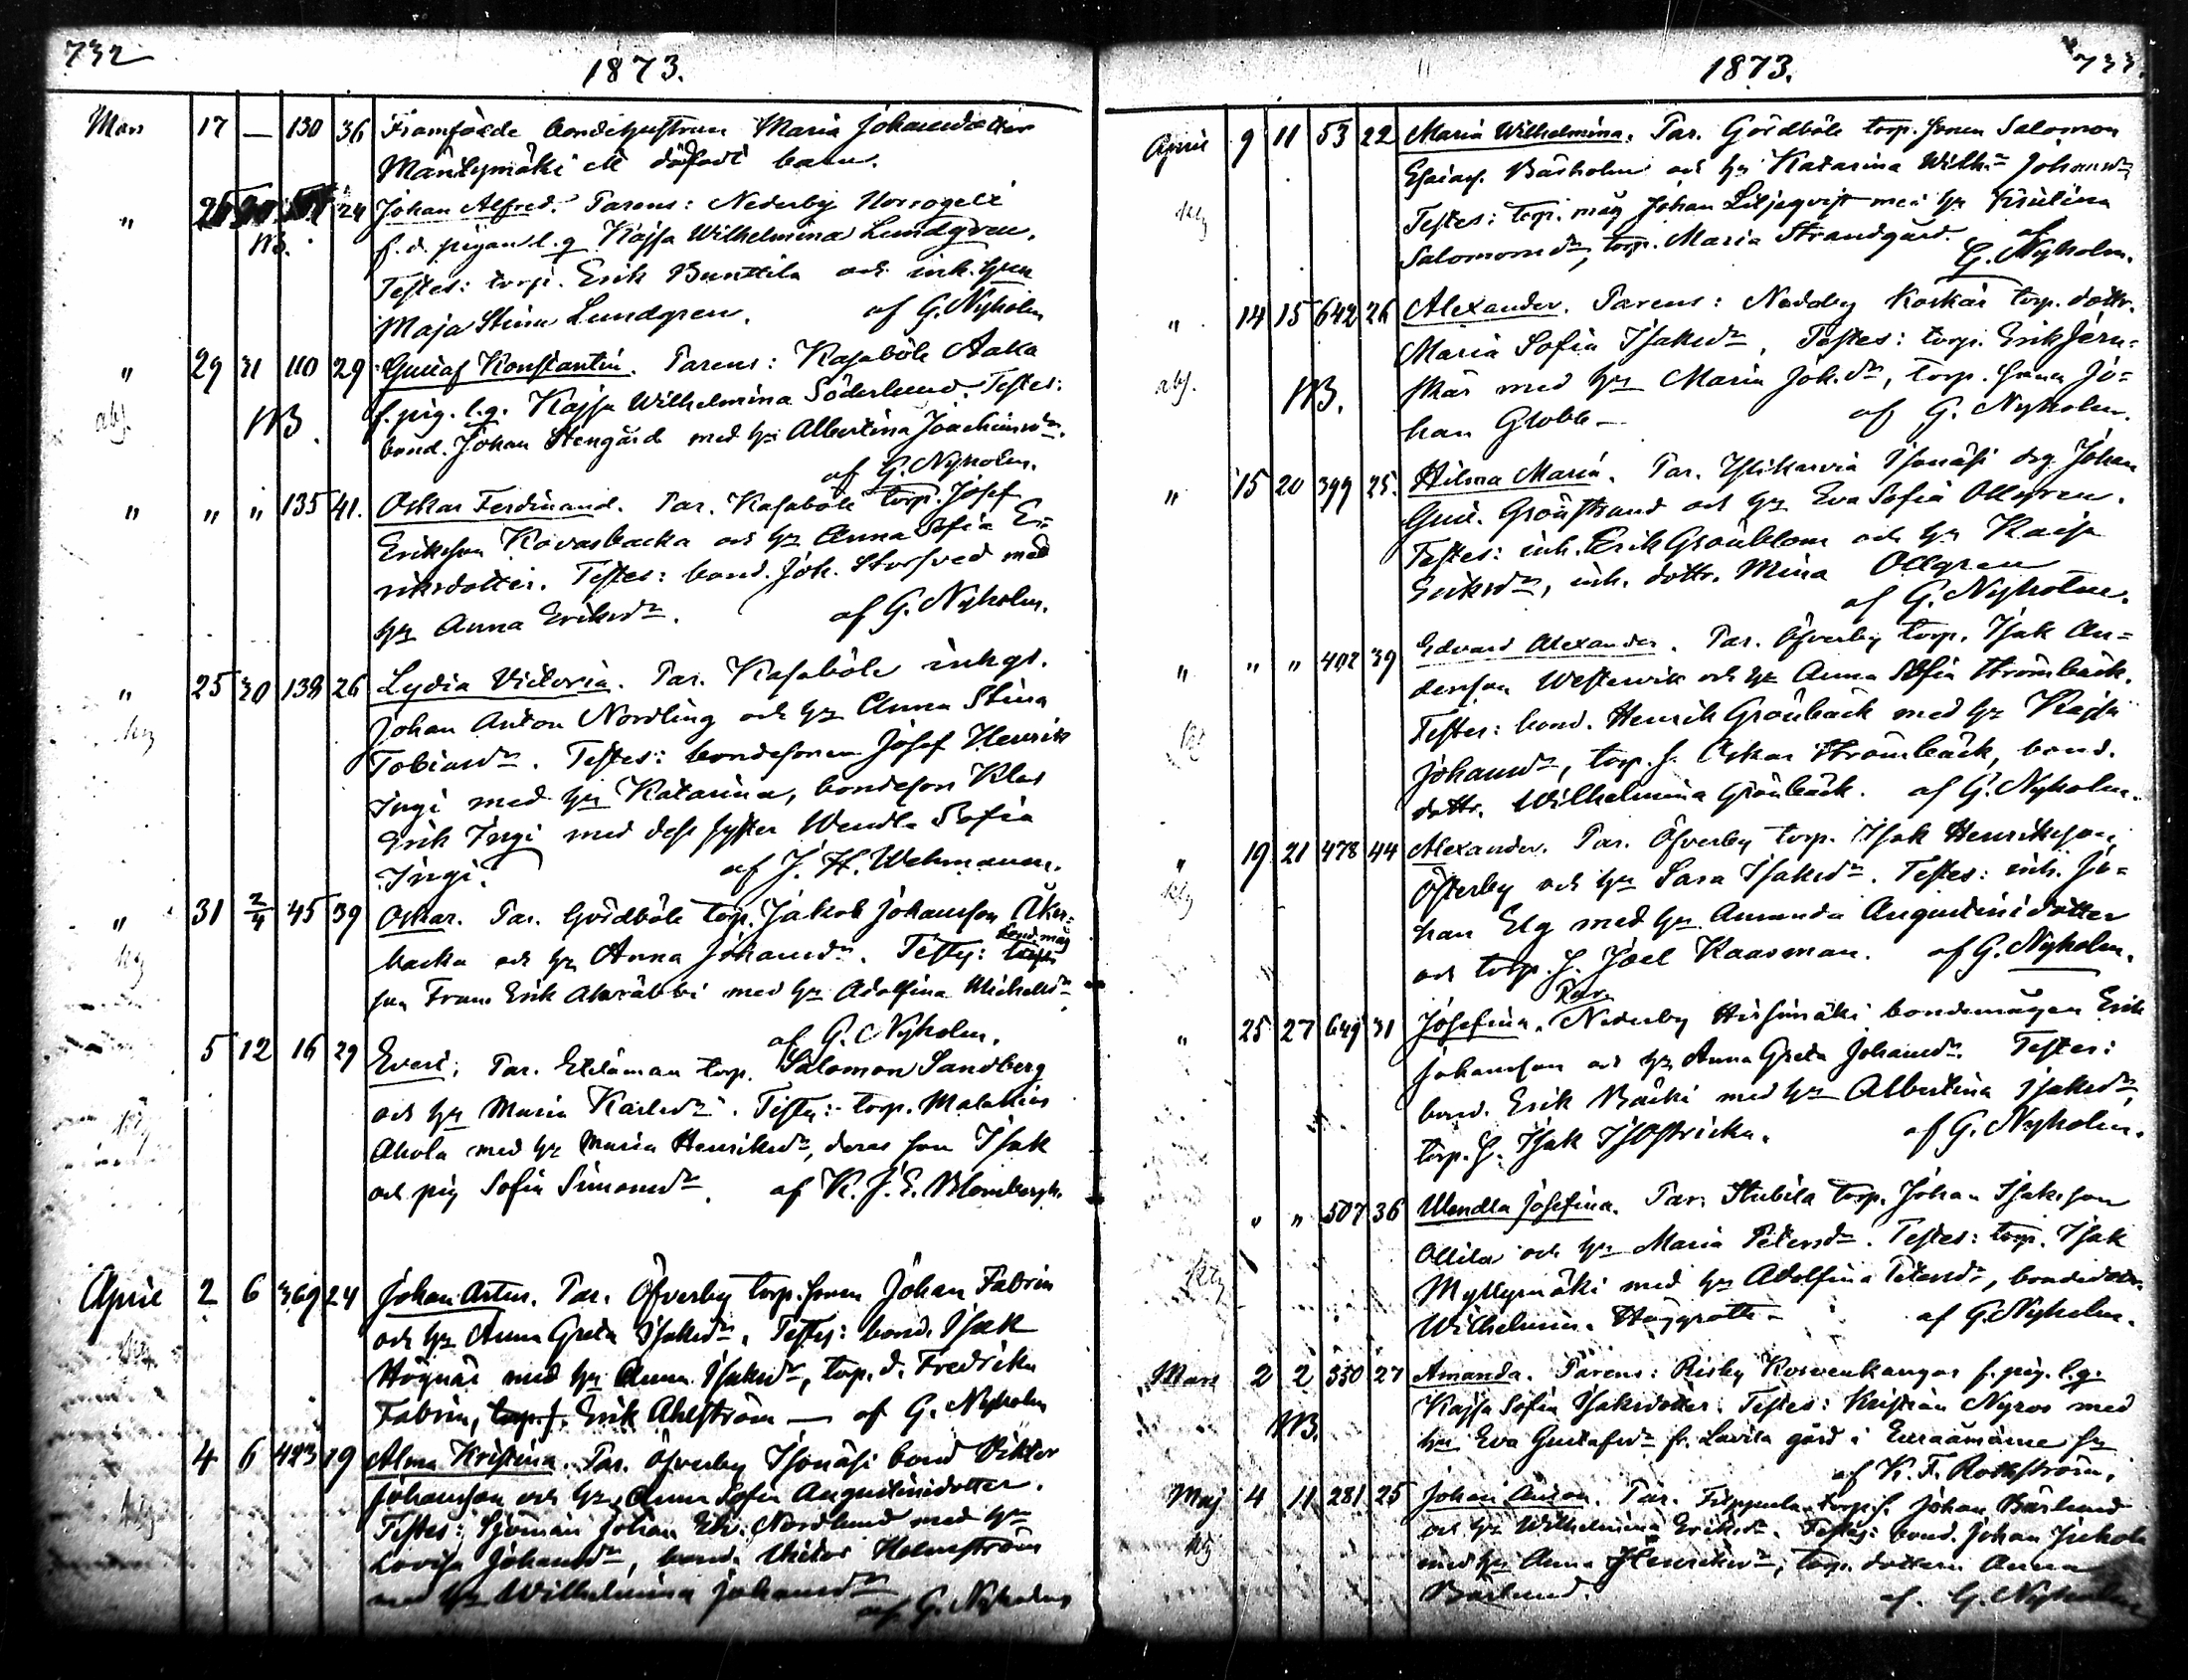 732
1873.
Mars 17 — 130 36 Framfödde bondehustrun Maria Johansdotter
Mäntymäki et dödfödt barn.
" 26 30 24 Johan Alfred. Parens: Nederby Norrogeli
NB. f. d. pigan l. q. Kajsa Wilhelmina Lundgren.
Testes: torp. Erik Bunttila och inh. hun
Maja Stina Lundgren. af G. Nyholm
" 29 31 110 29 Gustaf Konstantin. Parens: Kasaböle Aaka
abs. NB. f. pig. l. q. Kajsa Wilhelmina Söderlund. Testes:
bond. Johan Stengård med hu Albertina Joachimsdr.
af G. Nyholm.
" " " 135 41. Oskar Ferdinand. Par. Kasaböle torp. Josef
Eriksson Kovasbacka och hu Anna Sofia E-
riksdotter. Testes: bond. Joh. Storsved med
hu Anna Eriksdr. af G. Nyholm.
" 25 30 138 26 Lydia Victoria. Par. Kasaböle inhys.
Johan Anton Nordling och hu Anna Stina
Tobiasdr. Testes: bondesonen Josef Henrik
Ingi med hu Katarina, bondeson Klas
Erik Ingi med dess syster Wendla Sofia
Ingi. af J. H. Wehmann.
" 31 2/4 45 39 Oskar. Par. Gördböle torp. Jakob Johansson Åker-
bond. måg
backa och hu Anna Johansdr. Testes:
Frans Erik Alaräbbi med hu Adolfina Michelsdr
af G. Nyholm.
5 12 16 29 Evert. Par. Etelämaa torp. Salomon Sandberg
och hu Maria Karlsdr. Testes: torp. Malakias
Ahola med hu Maria Henriksdr, deras son Isak
och pig Sofia Simonsdr. af K. J. E. Blombergh.
April 2 6 369 24 Johan Artur. Par. Öfverby torp. sonen Johan Fabrin
och hu Anna Greta Isaksdr. Testes: bond. Isak
Högnäs med hu Anna Isaksdr, torp. d. Fredrika
Fabrin, torp. s. Erik Ahlström — af G. Nyholm
4 6 423 19 Alma Kristina. Par. Öfverby Isonäsi bond Viktor
Johansson och hu Anna Sofia Augustinidotter.
Testes: Sjöman Johan Edv. Nordlund med hu
Lovisa Johansdr, bond. Viktor Holmström
med hu Wilhelmina Johansdr
af G. Nyholm
1873.
733.
April 9 11 53 22 Maria Wilhelmina. Par. Gördböle torp. sonen Salomon
Esaiass. Bäsholm och hu Katarina Wilh:a Johansdr
Testes: torp. måg Johan Liljeqvist med hu Eriulina
Salomonsdr, torp. Maria Strandgård. af
G. Nyholm.
" 14 15 642 26 Alexander. Parens: Nedaby Koskär torp. dottr.
Maria Sofia Isaksdr. Testes: torp. Erik Jern-
abs. NB. skär med hu Maria Joh.dr, torp. sonen Jo-
han Globb — af G. Nyholm.
" 15 20 399 25. Hilma Maria. Par. Ylikarvia Isonäsi drg Johan
Gust. Grönstrand och hu Eva Sofia Ollgren.
Testes: inh. Erik Grönblom och hu Kaisa
Eriksdr, inh. dottr. Mina Ollgren
af G. Nyholm.
" " " 402 39 Edvard Alexander. Par. Öfverby torp. Isak An-
dersson Westervik och hu Anna Sofia Strömbäck.
Testes: bond. Henrik Grönbäck med hu Kajsa
Johansdr, torp. s. Oskar Strömbäck, bond.
dottr. Wilhelmina Grönbäck. af G. Nyholm.
" 19 21 478 44 Alexander. Par. Öfverby torp. Isak Henriksson
Österby och hu Sara Isaksdr. Testes: inh. Jo-
han Elg med hu Amanda Augustinidotter
och torp. s. Joel Kaasman. af G. Nyholm.
Par.
" 25 27 649 31 Josefina. Nederby Hirsimäki bondemågen Erik
Johansson och hu Anna Greta Johansdr. Testes:
bond. Erik Bäcki med hu Albertina Isaksdr,
torp. s. Isak Isostricka. af G. Nyholm.
" " 507 36 Wendla Josefina. Par. Stubila torp. Johan Isaksson
Ollila och hu Maria Petersdr. Testes: torp. Isak
Myllymäki med hu Adolfina Petersdr, bondedottr.
Wilhelmin. Häggrott — af G. Nyholm.
Mars 2 2 350 27 Amanda. Parens: Risby Korvenkangas f. pig. l. q.
Kajsa Sofia Isaksdotter. Testes: Kristian Nyroos med
NB. hu Eva Gustafsdr fr. Lavila gård i Euraåminne sn
af K. F. Rothström.
Maj 4 11 281 25 Johan Anton. Par. Trippula torp. s. Johan Bärlund
och hu Wilhelmina Eriksdr. Testes: bond. Johan Juhola
med hu Anna Henriksdr, torp. dottern Anna
Bärlund. af G. Nyholm